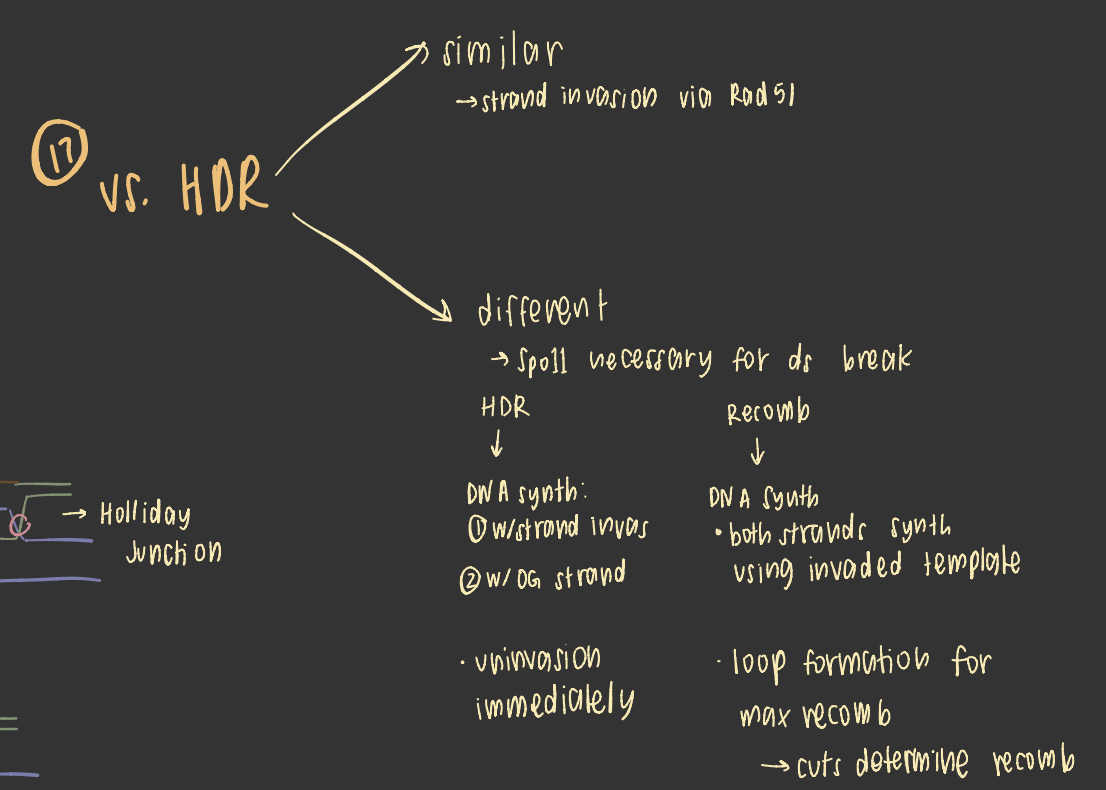 similar
→ strand invasion via Rad51
17
vs. HDR
different
→ Spo11 necessary for ds break
HDR
Recomb
DNA synth:
① w/strand invas
② w/ OG strand
DNA synth
• both strands synth
using invaded template
→ Holliday
Junction
• uninvasion
immediately
• loop formation for
max recomb
→ cuts determine recomb